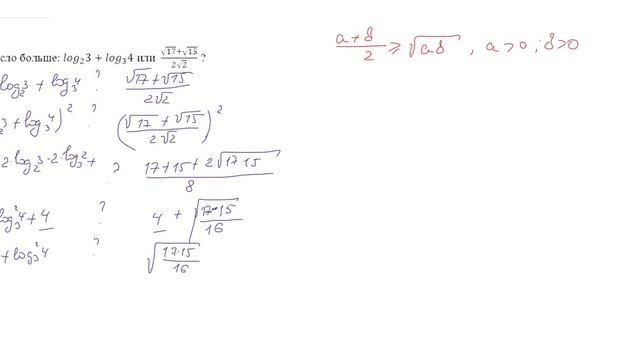 сло больше: log₂3 + log₃4 или (√17+√15)/(2√2) ?
log₂3 + log₃4 ? (√17+√15)/(2√2)
₂3 + log₃4)² ? ((√17+√15)/(2√2))²
2·log₂3·2·log₃2+ ? (17+15+2√17·15)/8
log₃²4+4 ? 4+√(17·15/16)
+log₃²4 ? √(17·15/16)
(a+b)/2 ≥ √ab , a>0 ; b>0